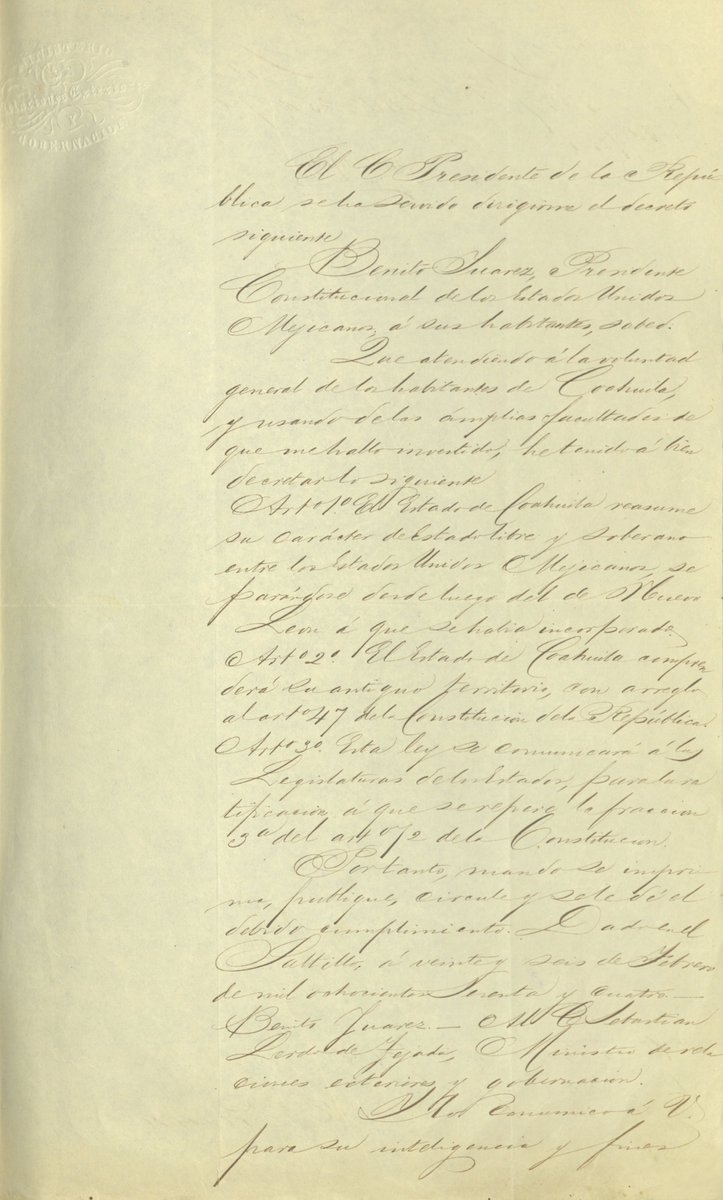 MINISTERIO
Relaciones Exteriores
Y
GOBERNACION
El C Presidente de la Repú-
blica se ha servido dirigirme el decreto
siguiente
Benito Juarez, Presidente
Constitucional de los Estados Unidos
Mejicanos, á sus habitantes, sabed.
Que atendiendo á la voluntad
general de los habitantes de Coahuila,
y usando de las ámplias facultades de
que me hallo investido, he tenido á bien
decretar lo siguiente
Arto 1o El Estado de Coahuila reasume
su carácter de Estado libre y soberano
entre los Estados Unidos Mejicanos, se
parándose desde luego del de Nuevo
Leon á que se habia incorporado.
Arto 2o El Estado de Coahuila compren
derá su antiguo territorio, con arreglo
al arto 47 de la Constitucion de la República.
Arto 3o Esta ley se comunicará á las
Legislaturas de los Estados, para la ra
tificacion, á que se refiere la fraccion
3a del arto 72 de la Constitucion.
Por tanto, mando se impri
ma, publique, circule y se le dé el
debido cumplimiento. Dado en el
Saltillo, á veinte y seis de Febrero
de mil ochocientos sesenta y cuatro.—
Benito Juarez.— Al C Sebastian
Lerdo de Tejada, Ministro de rela
ciones exteriores y gobernacion.
Y lo comunico á V.
para su inteligencia y fines